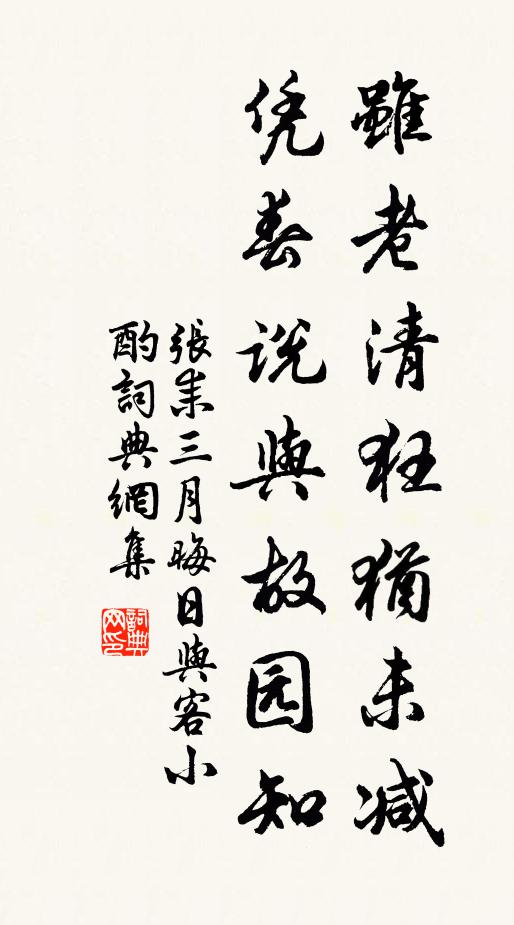 雖老清狂猶未减
凭春説與故园知
張耒三月晦日與客小
酌詞典網集
詞典網印